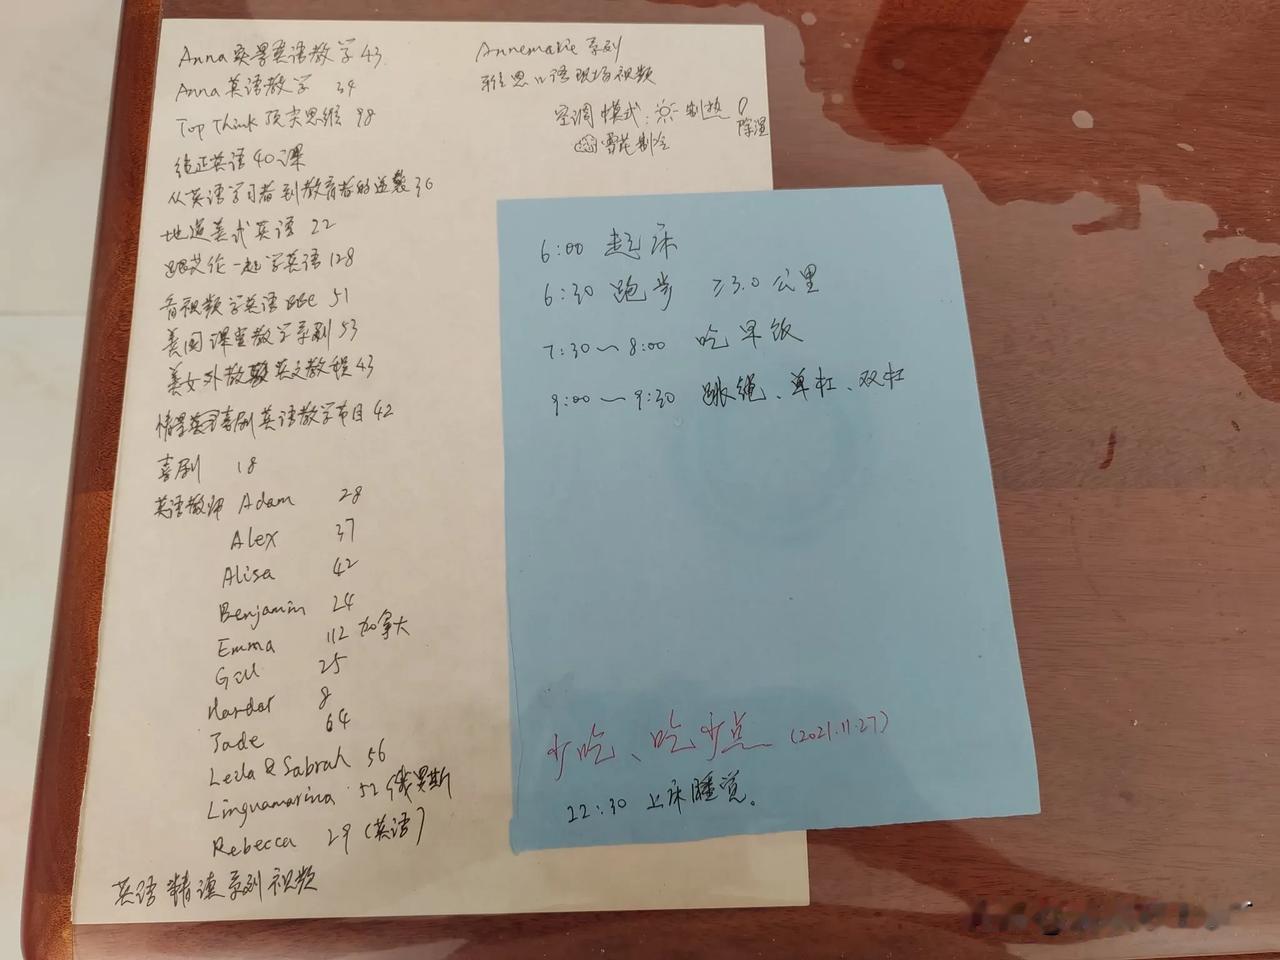 Anna 英语教学 43
Anna 英语教学 34
Top Think 顶尖思维 98
纯正英语 40课
从英语学习者到教育者的 36
地道美式英语 22
跟艾伦一起学英语 128
音视频学英语 51
美国课堂教学系列 53
美女外教 英文教程 43
情景喜剧英语教学节目 42
喜剧 18
英语教师 Adam 28
Alex 37
Alisa 42
Benjamin 24
Emma 112 加拿大
Gill 25
8
Jade 64
Leila & Sabrah 56
Linguamarina 52 (俄罗斯
Rebecca 29 (英语)
英语精读系列视频
Annemarie 系列
雅思口语现场视频
空调模式: 制热 除湿
雪花制冷
6:00 起床
6:30 跑步 ≥3.0公里
7:30～8:00 吃早饭
9:00～9:30 跳绳、单杠、双杠
少吃、吃少点 (2021.11.27)
22:30 上床睡觉。